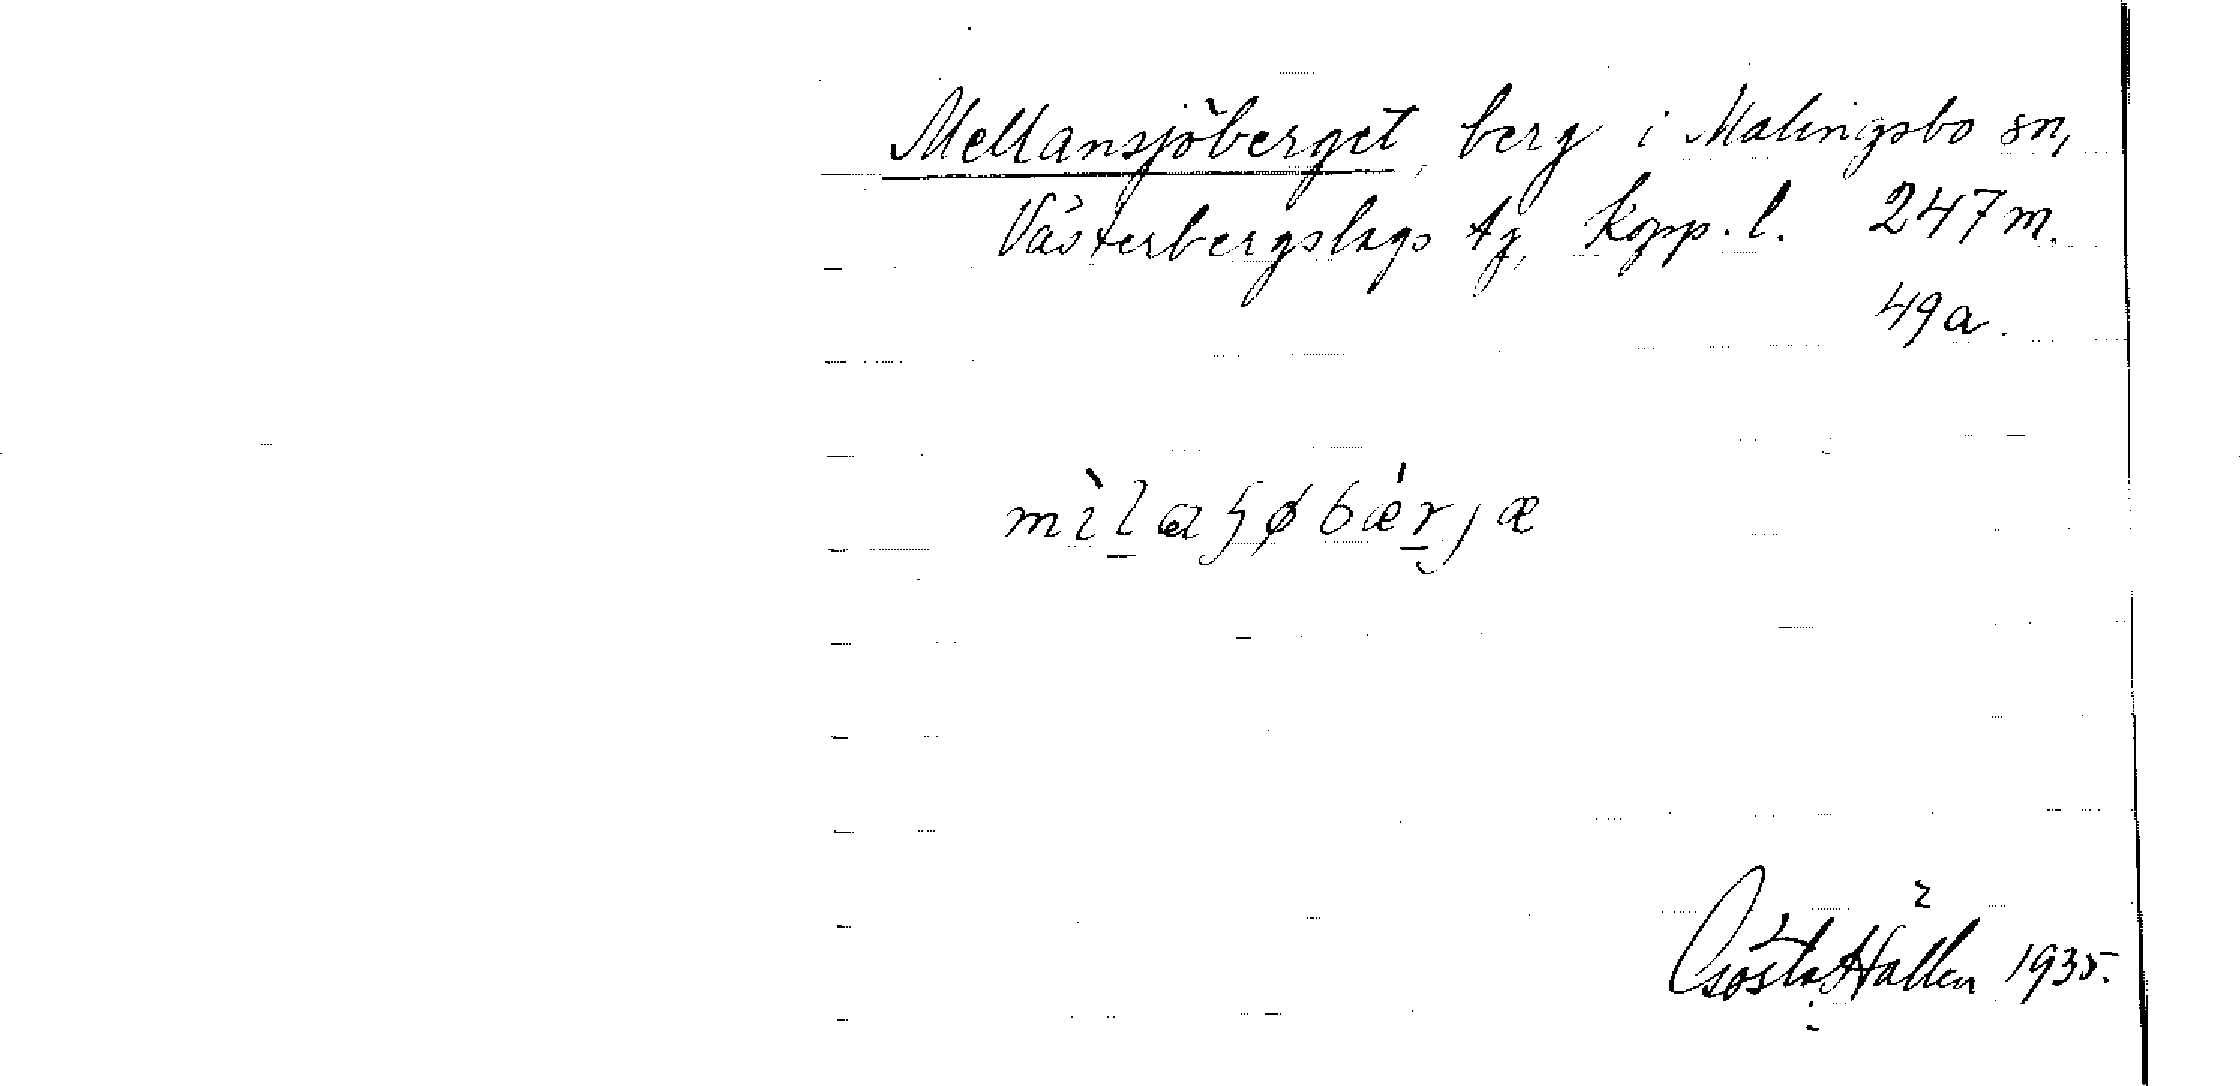 Mellansjöberget, berg i Malingsbo sn,
Västerbergslags tg, Kopp. l. 247 m.
49a.
Gösta Hallen 1935.